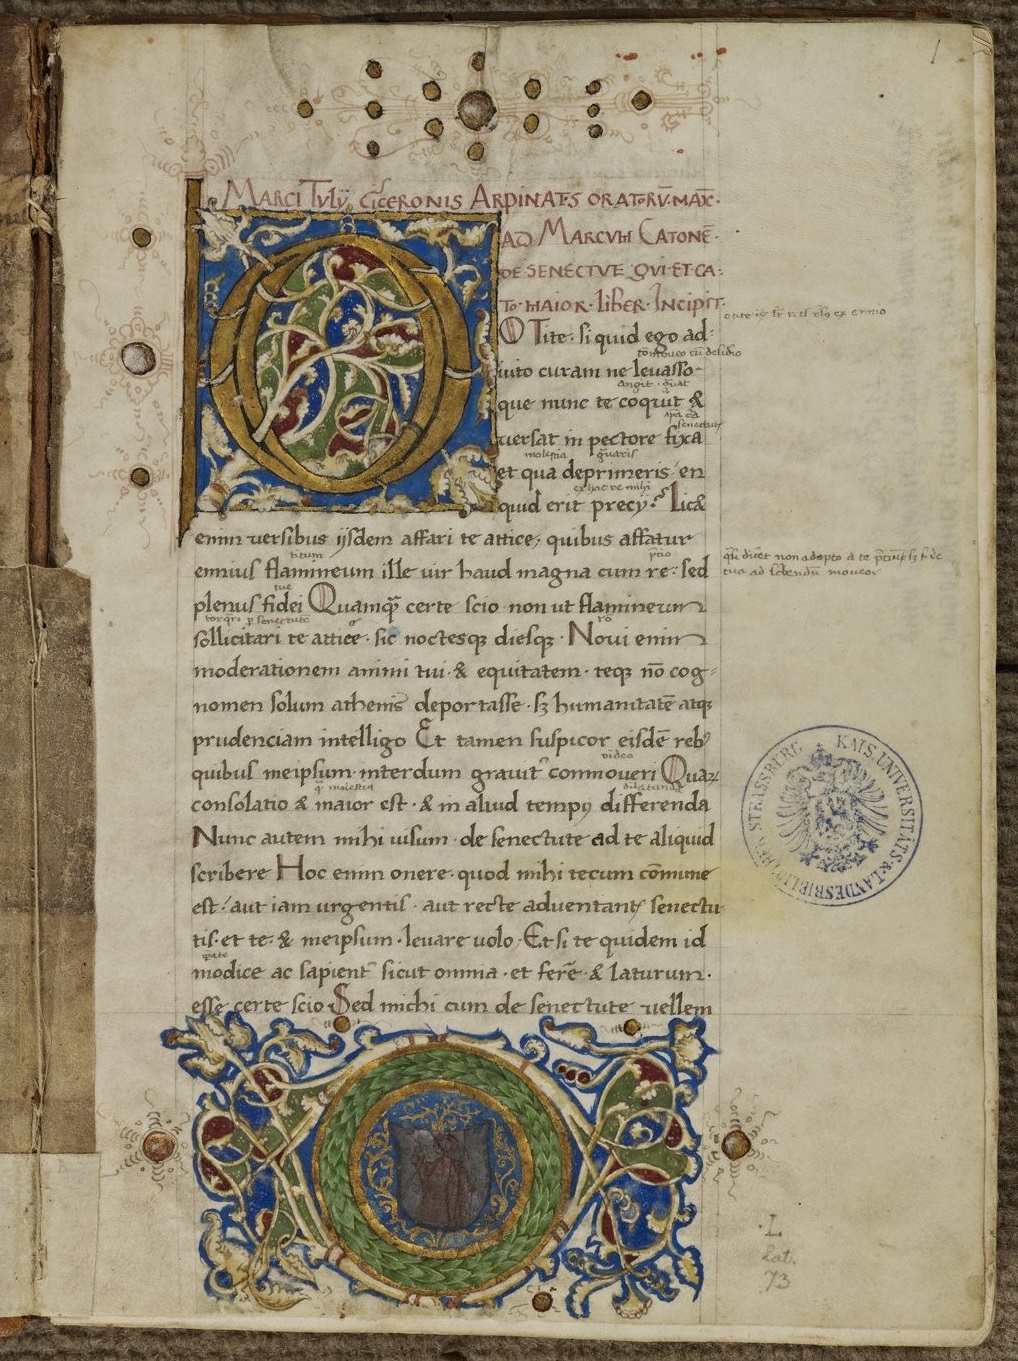 1
MARCI TVLIJ CICERONIS ARPINATIS ORATORŪ MAX̄·
AD MARCVM CATONĒ·
DE SENECTVE QVI ET CA:
TO·MAIOR·LIBER·INCIPIT·
O Tite· si quid ego ad:
iuto curam ne leuasso-
que nunc te coquit &
uersat in pectore fixa
et qua deprimeris en
quid erit precij? Lic&
enim uersibus ijsdem affari te attice, quibus affatur
ennius flamineum ille uir haud magna cum re: sed
plenus fidei Quamq̄ certe scio non ut flamineum
sollicitari te attice· sic noctesq; diesq; Noui enim
moderationem animi tui· & equitatem· teq; nō cog-
nomen solum athenis deportasse· sꝫ humanitatē atq;
prudenciam intelligo Et tamen suspicor eisdē rebꝰ
quibus meipsum interdum grauit᷑ commoueri Quaꝝ
consolatio & maior est· & in aliud tempꝰ differenda
Nunc autem mihi uisum· de senectute ad te aliquid
scribere Hoc enim onere· quod mihi tecum cōmune
est· aut iam urgentis· aut recte aduentantis senectu
tis· et te· & meipsum· leuare uolo· Etsi te quidem id
modice ac sapient᷑ sicut omnia· et ferre· & laturum·
esse certe scio Sed michi cum de senectute uellem
KAIS. UNIVERSITÄTS & LANDESBIBLIOTHEK STRASSBURG
L
lat.
73